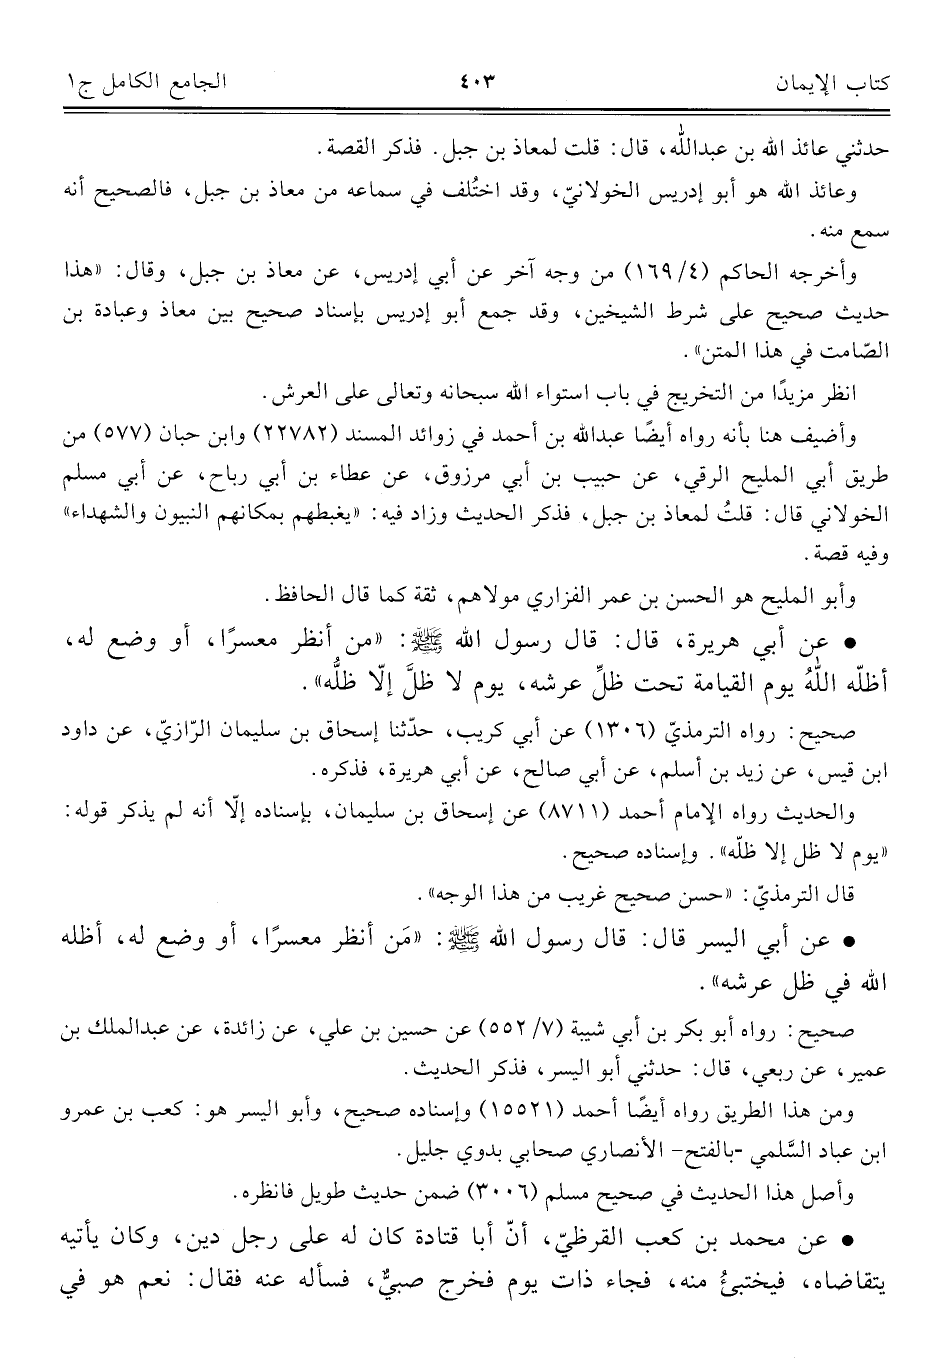 كتاب الإيمان ٤٠٣ الجامع الكامل ج١
حدثني عائذ الله بن عبدالله، قال: قلت لمعاذ بن جبل. فذكر القصة.
وعائذ الله هو أبو إدريس الخولانيّ، وقد اختُلف في سماعه من معاذ بن جبل، فالصحيح أنه
سمع منه.
وأخرجه الحاكم (٤/ ١٦٩) من وجه آخر عن أبي إدريس، عن معاذ بن جبل، وقال: «هذا
حديث صحيح على شرط الشيخين، وقد جمع أبو إدريس بإسناد صحيح بين معاذ وعبادة بن
الصّامت في هذا المتن».
انظر مزيدًا من التخريج في باب استواء الله سبحانه وتعالى على العرش.
وأضيف هنا بأنه رواه أيضًا عبدالله بن أحمد في زوائد المسند (٢٢٧٨٢) وابن حبان (٥٧٧) من
طريق أبي المليح الرقي، عن حبيب بن أبي مرزوق، عن عطاء بن أبي رباح، عن أبي مسلم
الخولاني قال: قلتُ لمعاذ بن جبل، فذكر الحديث وزاد فيه: «يغبطهم بمكانهم النبيون والشهداء»
وفيه قصة.
وأبو المليح هو الحسن بن عمر الفزاري مولاهم، ثقة كما قال الحافظ.
• عن أبي هريرة، قال: قال رسول الله ﷺ: «من أنظر معسرًا، أو وضع له،
أظلّه اللّهُ يوم القيامة تحت ظلِّ عرشه، يوم لا ظلَّ إلّا ظلُّه».
صحيح: رواه الترمذيّ (١٣٠٦) عن أبي كريب، حدّثنا إسحاق بن سليمان الرّازيّ، عن داود
ابن قيس، عن زيد بن أسلم، عن أبي صالح، عن أبي هريرة، فذكره.
والحديث رواه الإمام أحمد (٨٧١١) عن إسحاق بن سليمان، بإسناده إلّا أنه لم يذكر قوله:
«يوم لا ظل إلا ظلّه». وإسناده صحيح.
قال الترمذيّ: «حسن صحيح غريب من هذا الوجه».
• عن أبي اليسر قال: قال رسول الله ﷺ: «مَن أنظر معسرًا، أو وضع له، أظله
الله في ظل عرشه».
صحيح: رواه أبو بكر بن أبي شيبة (٧/ ٥٥٢) عن حسين بن علي، عن زائدة، عن عبدالملك بن
عمير، عن ربعي، قال: حدثني أبو اليسر، فذكر الحديث.
ومن هذا الطريق رواه أيضًا أحمد (١٥٥٢١) وإسناده صحيح، وأبو اليسر هو: كعب بن عمرو
ابن عباد السَّلمي -بالفتح- الأنصاري صحابي بدوي جليل.
وأصل هذا الحديث في صحيح مسلم (٣٠٠٦) ضمن حديث طويل فانظره.
• عن محمد بن كعب القرظيّ، أنّ أبا قتادة كان له على رجل دين، وكان يأتيه
يتقاضاه، فيختبئُ منه، فجاء ذات يوم فخرج صبيٌّ، فسأله عنه فقال: نعم هو في